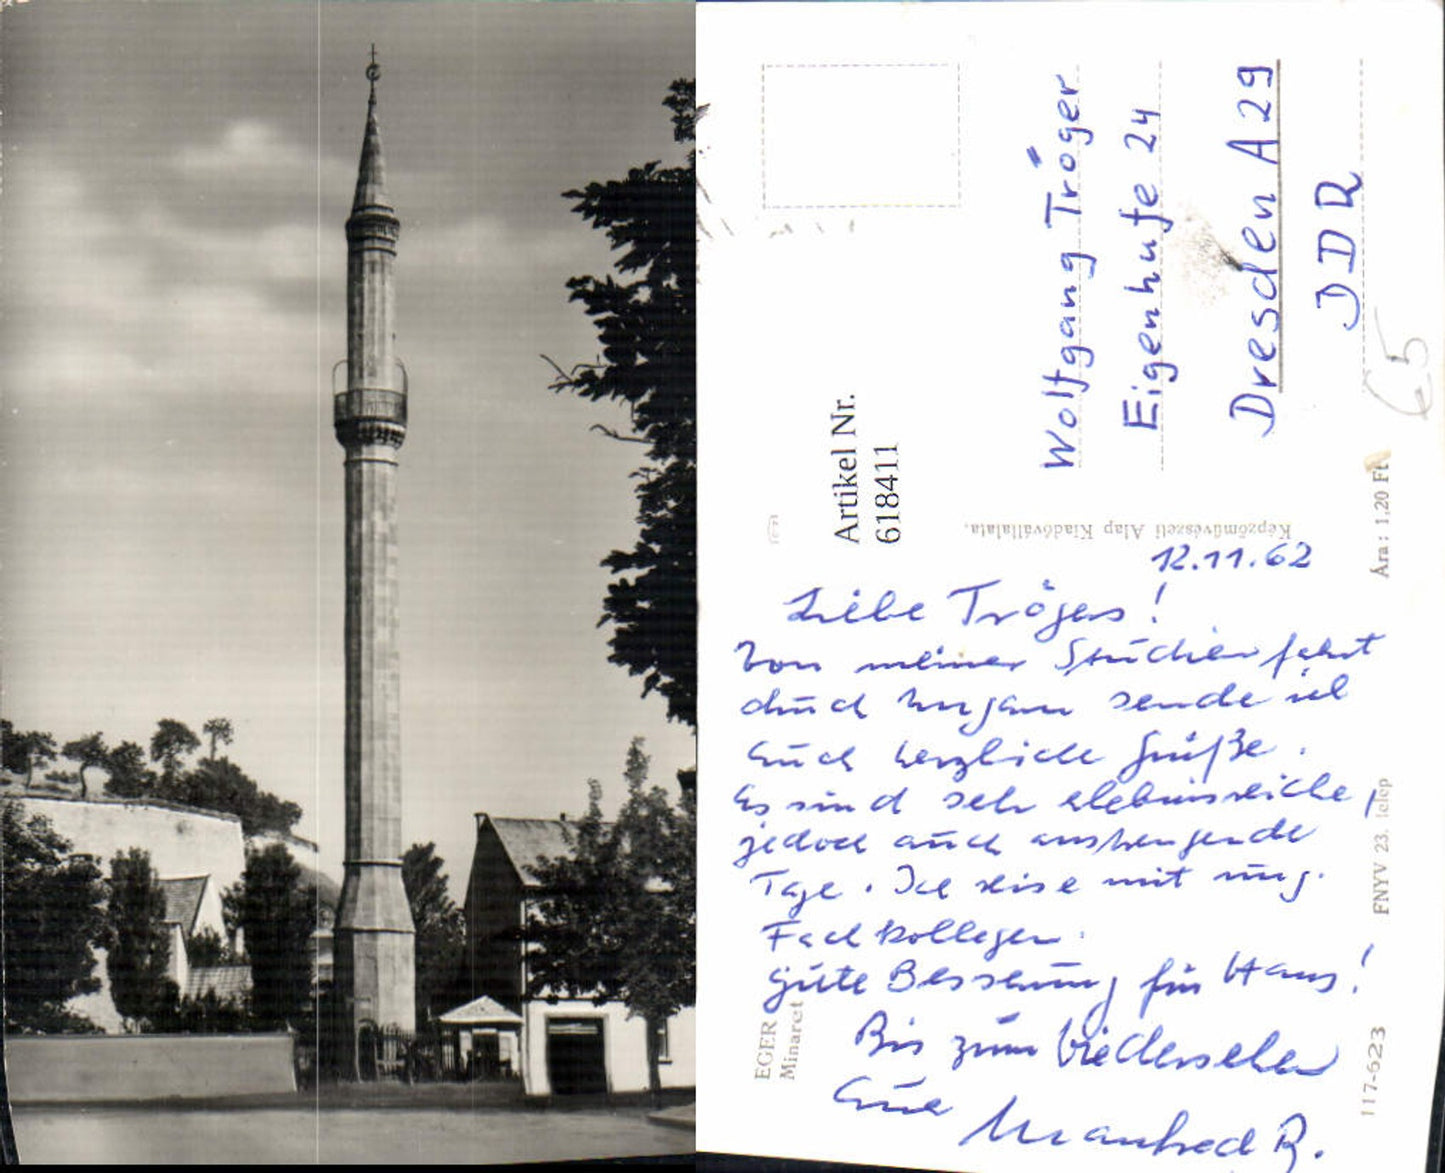 Wolfgang Tröger
Eigenhufe 24
Dresden A 29
DDR
€5
Artikel Nr.
618411
Képzőművészeti Alap Kiadóvállalata.
Ára: 1,20 Ft
12.11.62
Liebe Trögers!
Von meiner Studienfahrt
durch Ungarn sende ich
Euch herzliche Grüße.
Es sind sehr erlebnisreiche,
jedoch auch anstrengende
Tage. Ich reise mit ung.
Fachkollegen.
Gute Besserung für Hans!
Bis zum Wiedersehen
Euer Manfred R.
EGER
Minaret
FNYV 23. telep
117-623